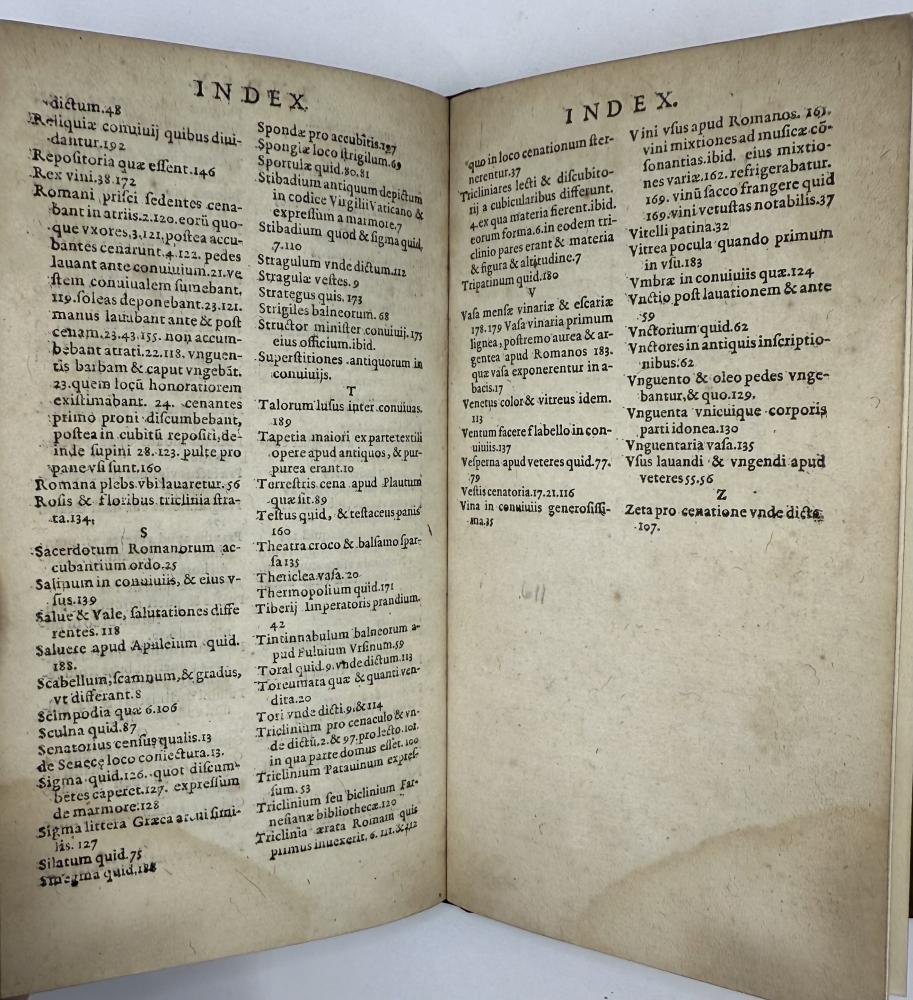 INDEX.
dictum.48
Reliquiæ conuiuij quibus diui-
dantur.192
Repositoria quæ essent.146
Rex vini.38.172
Romani prisci sedentes cena-
bant in atriis.2.120.eorū quo-
que vxores.3.121.postea accu-
bantes cenarunt.4.122. pedes
lauant ante conuiuium.21.ve
stem conuiualem sumebant.
119.soleas deponebant.23.121.
manus lauabant ante & post
cenam.23.43.155. non accum-
bebant atrati.22.118. vnguen-
tis barbam & caput vngebāt.
23.quem locū honoratiorem
existimabant. 24. cenantes
primo proni discumbebant,
postea in cubitū repositi, de-
inde supini 28.123. pulte pro
pane vsi sunt.160
Romana plebs vbi lauaretur.56
Rosis & floribus triclinia stra-
ta.134.
S
Sacerdotum Romanorum ac-
cubantium ordo.25
Salinum in conuiuiis, & eius v-
sus.139
Salue & Vale, salutationes diffe
rentes. 118
Saluere apud Apuleium quid.
188.
Scabellum, scamnum, & gradus,
vt differant.8
Scimpodia quæ 6.106
Sculna quid.87
Senatorius census qualis.13
de Senecę loco coniectura.13.
Sigma quid.126. quot discum-
betes caperet.127. expressum
de marmore.128
Sigma littera Græca arcui simi-
lis. 127
Silatum quid.75
Smegma quid.188
Spondæ pro accubitis.127
Spongiæ loco strigilum.69
Sportulæ quid.80.81
Stibadium antiquum depictum
in codice Virgilii Vaticano &
expressum a marmore.7
Stibadium quod & sigma quid,
7.110
Stragulum vnde dictum.112
Stragulæ vestes.9
Strategus quis. 173
Strigiles balneorum. 68
Structor minister conuiuij.175
eius officium.ibid.
Superstitiones antiquorum in
conuiuijs.
T
Talorum lusus inter conuiuas.
189
Tapetia maiori ex parte textili
opere apud antiquos, & pur-
purea erant.10
Terrestris cena apud Plautum
quæ sit.89
Testus quid, & testaceus panis
160
Theatra croco & balsamo spar-
sa 135
Thericlea vasa. 20
Thermopolium quid.171
Tiberij Imperatoris prandium.
42
Tintinnabulum balneorum a-
pud Fuluium Vrsinum.59
Toral quid.9.vnde dictum.113
Toreumata quæ & quanti ven-
dita.20
Tori vnde dicti.9.&114
Triclinium pro cenaculo & vn-
de dictū.2.& 97.pro lecto.101.
in qua parte domus esset.100
Triclinium Patauinum expres-
sum. 53
Triclinium seu biclinium Far-
nesianæ bibliothecæ.120
Triclinia ærata Romam quis
primus inuexerit. 6. 111.&112
INDEX.
quo in loco cenationum ster-
nerentur.37
Tricliniares lecti & discubito-
rij a cubicularibus differunt.
4.ex qua materia fierent.ibid.
eorum forma.6.in eodem tri-
clinio pares erant & materia
& figura & altitudine.7
Tripatinum quid.180
V
Vasa mensæ vinariæ & escariæ
178.179 Vasa vinaria primum
lignea, postremo aurea & ar-
gentea apud Romanos 183.
quæ vasa exponerentur in a-
bacis.17
Venetus color & vitreus idem.
113
Ventum facere flabello in con-
uiuiis.137
Vesperna apud veteres quid.77.
79
Vestis cenatoria.17.21.116
Vina in conuiuiis generosissi-
ma.35
Vini vsus apud Romanos. 161.
vini mixtiones ad musicæ cō-
sonantias.ibid. eius mixtio-
nes variæ.162. refrigerabatur.
169. vinū sacco frangere quid
169.vini vetustas notabilis.37
Vitelli patina.32
Vitrea pocula quando primum
in vsu.183
Vmbræ in conuiuiis quæ.124
Vnctio post lauationem & ante
59
Vnctorium quid.62
Vnctores in antiquis inscriptio-
nibus.62
Vnguento & oleo pedes vnge-
bantur, & quo.129.
Vnguenta vnicuique corporis
parti idonea.130
Vnguentaria vasa.135
Vsus lauandi & vngendi apud
veteres 55.56
Z
Zeta pro cenatione vnde dicta.
107.